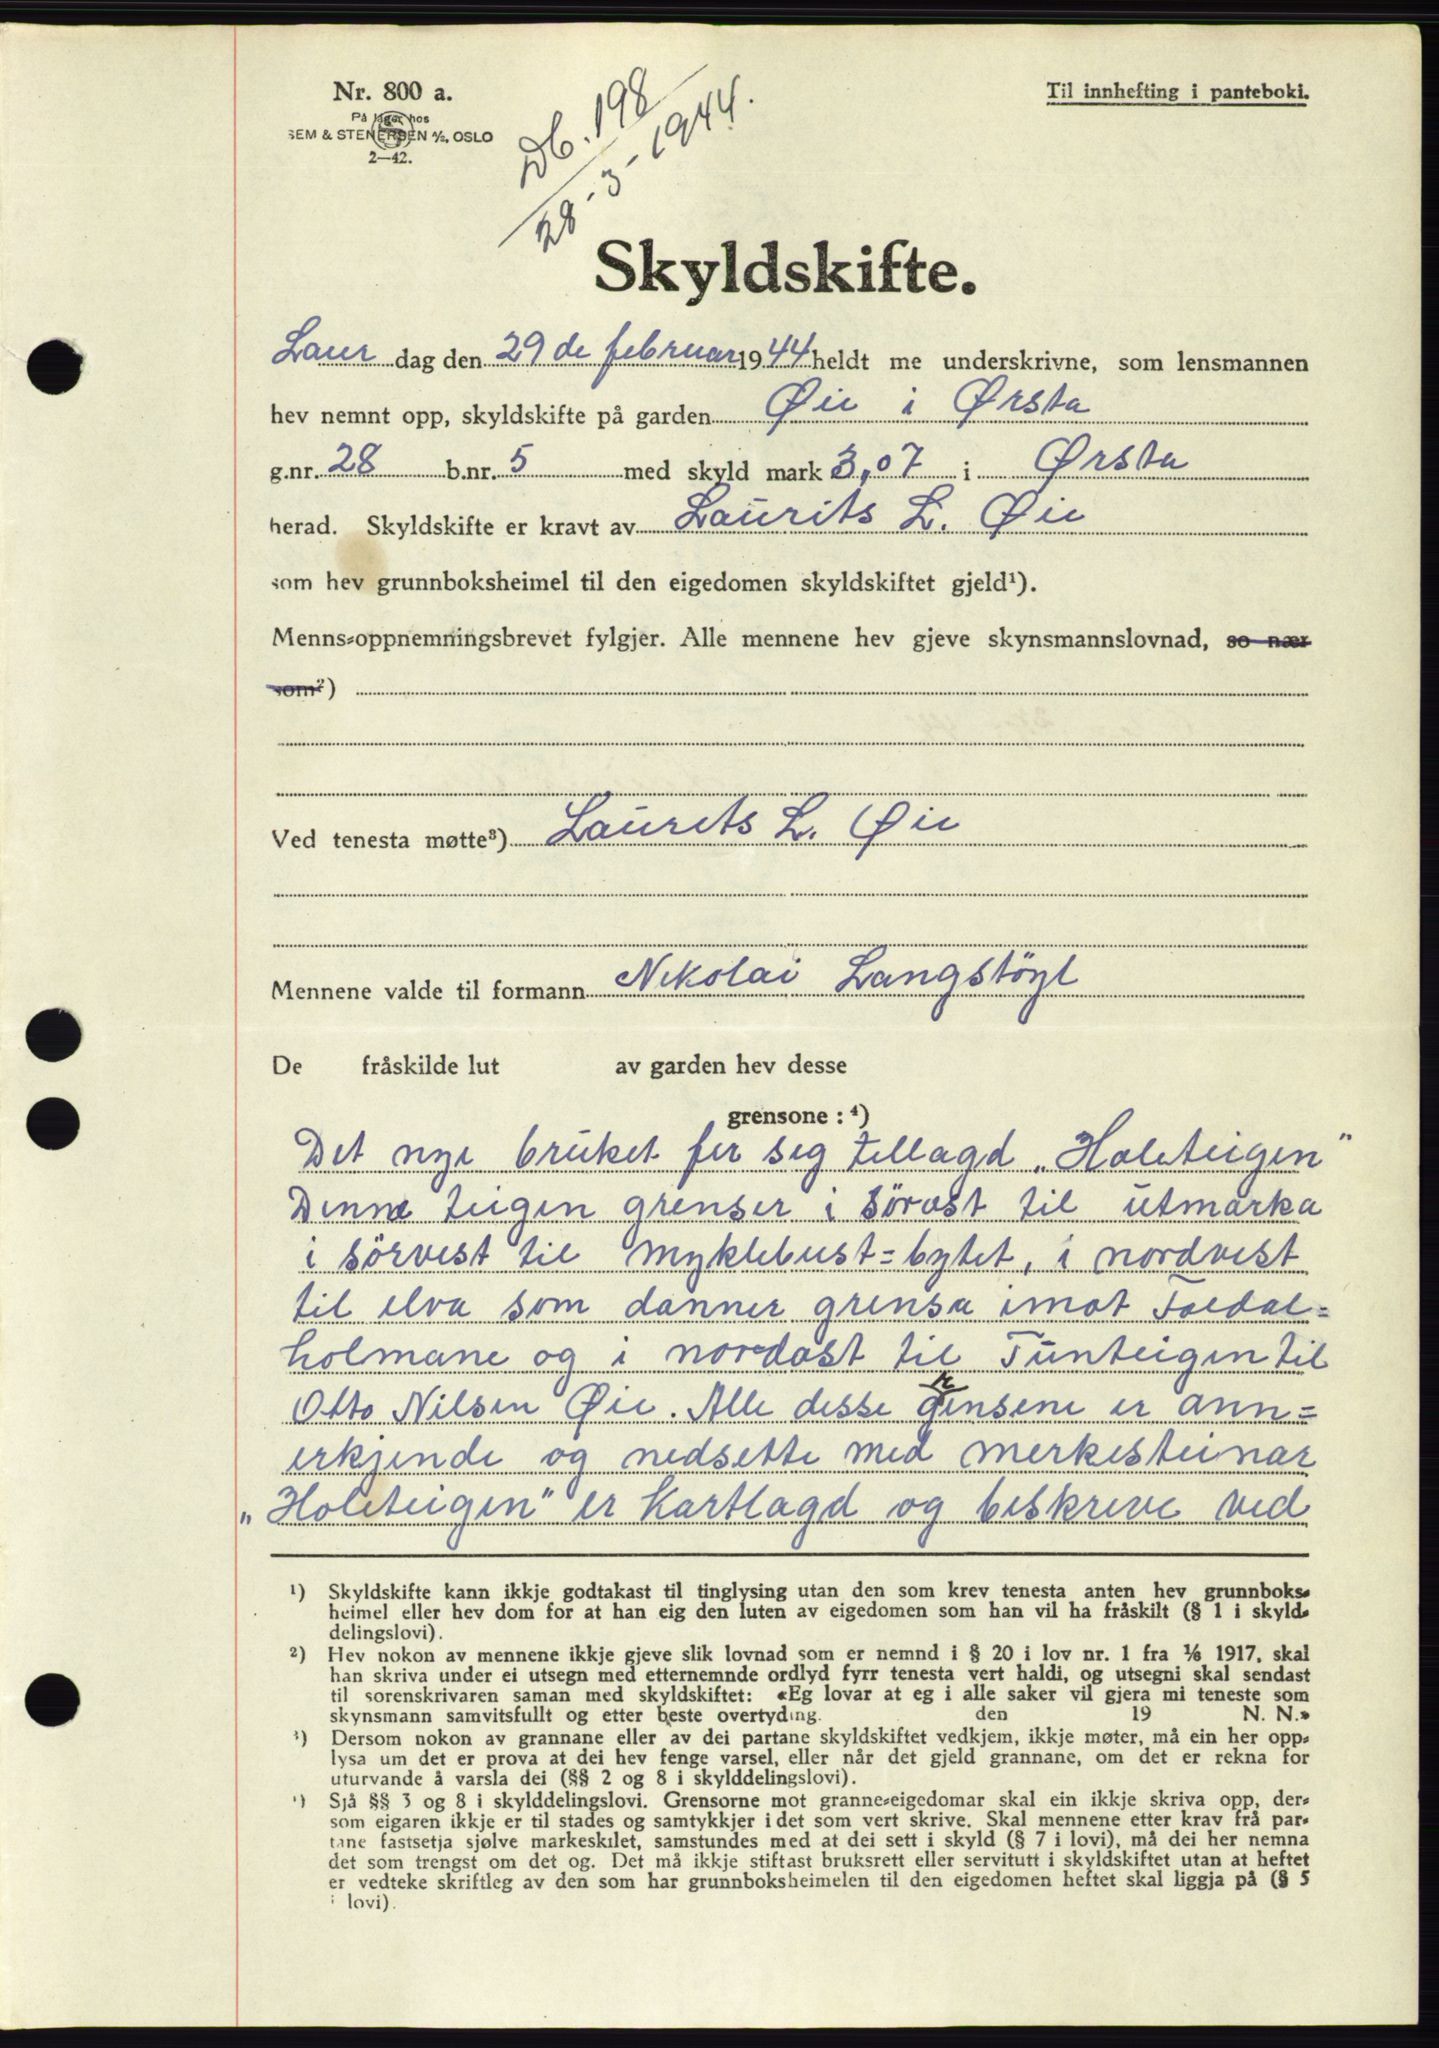 Nr. 800 a.
På lager hos
SEM & STENERSEN A/S, OSLO
2—42.
Db. 198
28-3-1944.
Til innhefting i panteboki.
Skyldskifte.
Laur dag den 29 de februar 1944 heldt me underskrivne, som lensmannen
hev nemnt opp, skyldskifte på garden Øie i Ørsta
g.nr. 28 b.nr. 5 med skyld mark 3,07 i Ørsta
herad. Skyldskifte er kravt av Laurits L. Øie
som hev grunnboksheimel til den eigedomen skyldskiftet gjeld¹).
Menns-oppnemningsbrevet fylgjer. Alle mennene hev gjeve skynsmannslovnad, so nær
som²)
Ved tenesta møtte³) Laurits L. Øie
Mennene valde til formann Nikolai Langstöyl
De fråskilde lut av garden hev desse
grensone : ⁴)
Det nye bruket fer seg tillagd „Holeteigen"
Denne teigen grenser i söraust til utmarka
i sörvest til Myklebust=bytet, i nordvest
til elva som danner grensa imot Foldal=
holmane og i nordaust til Tunteigen til
Otto Nilsen Øie. Alle desse grensene er ann=
erkjende og nedsette med merkesteinar
„Holeteigen" er Kartlagd og beskreve ved
¹) Skyldskifte kann ikkje godtakast til tinglysing utan den som krev tenesta anten hev grunnboks-
heimel eller hev dom for at han eig den luten av eigedomen som han vil ha fråskilt (§ 1 i skyld-
delingslovi).
²) Hev nokon av mennene ikkje gjeve slik lovnad som er nemnd i § 20 i lov nr. 1 fra 1/6 1917, skal
han skriva under ei utsegn med etternemnde ordlyd fyrr tenesta vert haldi, og utsegni skal sendast
til sorenskrivaren saman med skyldskiftet: «Eg lovar at eg i alle saker vil gjera mi teneste som
skynsmann samvitsfullt og etter beste overtyding. den 19 N. N.»
³) Dersom nokon av grannane eller av dei partane skyldskiftet vedkjem, ikkje møter, må ein her opp-
lysa um det er prova at dei hev fenge varsel, eller når det gjeld grannane, om det er rekna for
uturvande å varsla dei (§§ 2 og 8 i skylddelingslovi).
⁴) Sjå §§ 3 og 8 i skylddelingslovi. Grensorne mot granne-eigedomar skal ein ikkje skriva opp, der-
som eigaren ikkje er til stades og samtykkjer i det som vert skrive. Skal mennene etter krav frå par-
tane fastsetja sjølve markeskilet, samstundes med at dei sett i skyld (§ 7 i lovi), må dei her nemna
det som trengst om det og. Det må ikkje stiftast bruksrett eller servitutt i skyldskiftet utan at heftet
er vedteke skriftleg av den som har grunnboksheimelen til den eigedomen heftet skal liggja på (§ 5
i lovi).